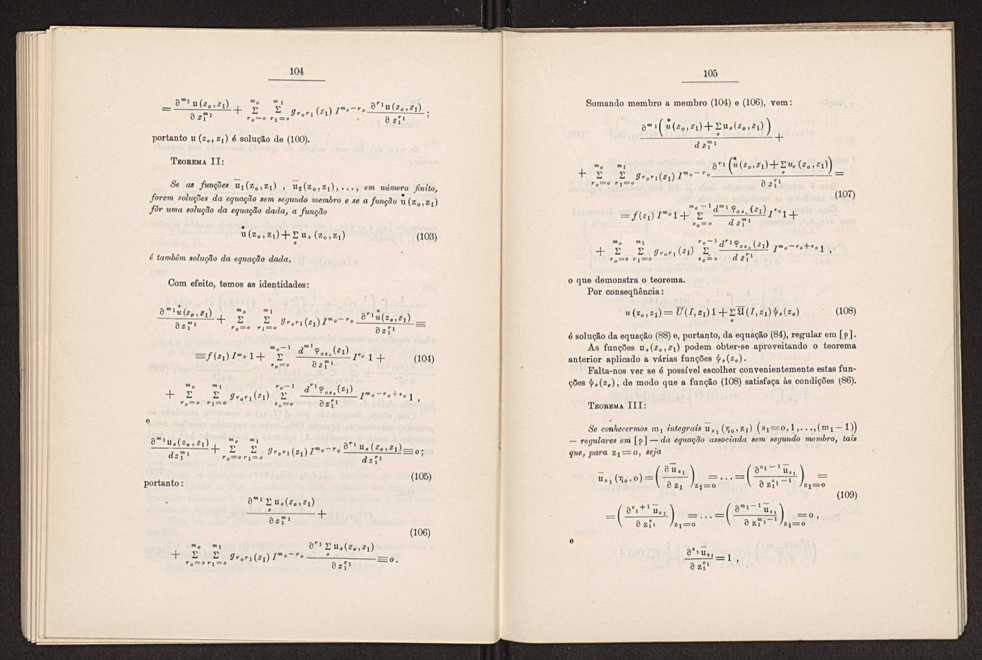 104
= ∂^{m_1} u(z_o, z_1) / ∂ z_1^{m_1} + Σ_{r_o=o}^{m_o} Σ_{r_1=o}^{m_1} g_{r_o r_1}(z_1) I^{m_o−r_o} ∂^{r_1} u(z_o, z_1) / ∂ z_1^{r_1} ;
portanto u (z_o, z_1) é solução de (100).
TEOREMA II:
Se as funções u̅_1(z_o, z_1) , u̅_2(z_o, z_1), . . . , em número finito,
forem soluções da equação sem segundo membro e se a função u̇(z_o, z_1)
fôr uma solução da equação dada, a função
u̇ (z_o, z_1) + Σ_s u_s (z_o, z_1) (103)
é também solução da equação dada.
Com efeito, temos as identidades:
∂^{m_1} u̇(z_o, z_1) / ∂ z_1^{m_1} + Σ_{r_o=o}^{m_o} Σ_{r_1=o}^{m_1} g_{r_o r_1}(z_1) I^{m_o−r_o} ∂^{r_1} u̇(z_o, z_1) / ∂ z_1^{r_1} ≡
≡ f(z_1) I^{m_o} 1 + Σ_{s_o=o}^{m_o−1} d^{m_1} φ_{o s_o}(z_1) / ∂ z_1^{m_1} I^{s_o} 1 + (104)
+ Σ_{r_o=o}^{m_o} Σ_{r_1=o}^{m_1} g_{r_o r_1}(z_1) Σ_{s_o=o}^{r_o−1} d^{r_1} φ_{o s_o}(z_1) / ∂ z_1^{r_1} I^{m_o−r_o+s_o} 1 ,
e
∂^{m_1} u_s(z_o, z_1) / d z_1^{m_1} + Σ_{r_o=o}^{m_o} Σ_{r_1=o}^{m_1} g_{r_o r_1}(z_1) I^{m_o−r_o} ∂^{r_1} u_s(z_o, z_1) / d z_1^{r_1} ≡ o;
(105)
portanto:
∂^{m_1} Σ_s u_s(z_o, z_1) / ∂ z_1^{m_1} +
(106)
+ Σ_{r_o=o}^{m_o} Σ_{r_1=o}^{m_1} g_{r_o r_1}(z_1) I^{m_o−r_o} ∂^{r_1} Σ_s u_s(z_o, z_1) / ∂ z_1^{r_1} ≡ o.
105
Somando membro a membro (104) e (106), vem:
∂^{m_1} ( u̇(z_o, z_1) + Σ_s u_s(z_o, z_1) ) / d z_1^{m_1} +
+ Σ_{r_o=o}^{m_o} Σ_{r_1=o}^{m_1} g_{r_o r_1}(z_1) I^{m_o−r_o} ∂^{r_1} ( u̇(z_o, z_1) + Σ_s u_s(z_o, z_1) ) / ∂ z_1^{r_1} =
(107)
= f(z_1) I^{m_o} 1 + Σ_{s_o=o}^{m_o−1} d^{m_1} φ_{o s_o}(z_1) / d z_1^{m_1} I^{s_o} 1 +
+ Σ_{r_o=o}^{m_o} Σ_{r_1=o}^{m_1} g_{r_o r_1}(z_1) Σ_{s_o=o}^{r_o−1} d^{r_1} φ_{o s_o}(z_1) / d z_1^{r_1} I^{m_o−r_o+s_o} 1 ,
o que demonstra o teorema.
Por conseqüência:
u (z_o, z_1) = U̅ (I, z_1) 1 + Σ_s U̅ (I, z_1) ψ_s (z_o) (108)
é solução da equação (88) e, portanto, da equação (84), regular em [p].
As funções u_s(z_o, z_1) podem obter-se aproveitando o teorema
anterior aplicado a várias funções ψ_s(z_o).
Falta-nos ver se é possível escolher convenientemente estas fun-
ções ψ_s(z_o), de modo que a função (108) satisfaça às condições (86).
TEOREMA III:
Se conhecermos m_1 integrais u̅_{s_1} (η_o, z_1) (s_1 = o, 1, . . . , (m_1 − 1))
— regulares em [p] — da equação associada sem segundo membro, tais
que, para z_1 = o, seja
u̅_{s_1} (η_o, o) = ( ∂ u̅_{s_1} / ∂ z_1 )_{z_1=o} = . . . = ( ∂^{s_1−1} u̅_{s_1} / ∂ z_1^{s_1−1} )_{z_1=o} =
(109)
= ( ∂^{s_1+1} u̅_{s_1} / ∂ z_1^{s_1} )_{z_1=o} = . . . = ( ∂^{m_1−1} u̅_{s_1} / ∂ z_1^{m_1−1} )_{z_1=o} = o ,
e
∂^{s_1} u̅_{s_1} / ∂ z_1^{s_1} = 1 ,